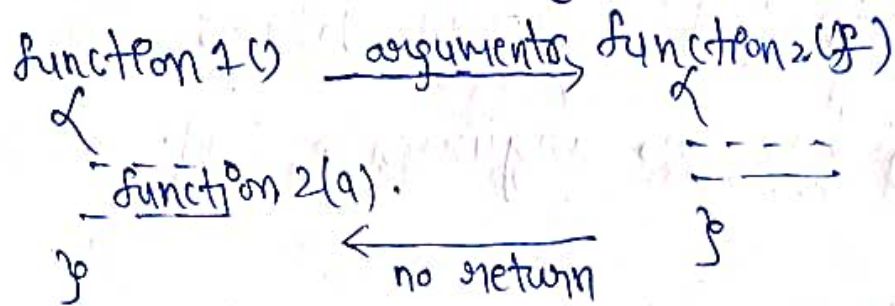 function 1() arguments function2(f)
{ {
function 2(a).
} }
no return